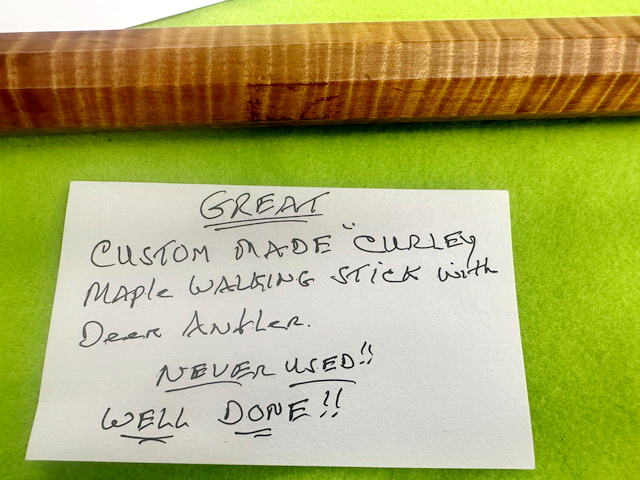 GREAT
CUSTOM MADE "CURLEY
MAPLE WALKING STICK with
Deer Antler.
NEVER USED!!
WELL DONE!!